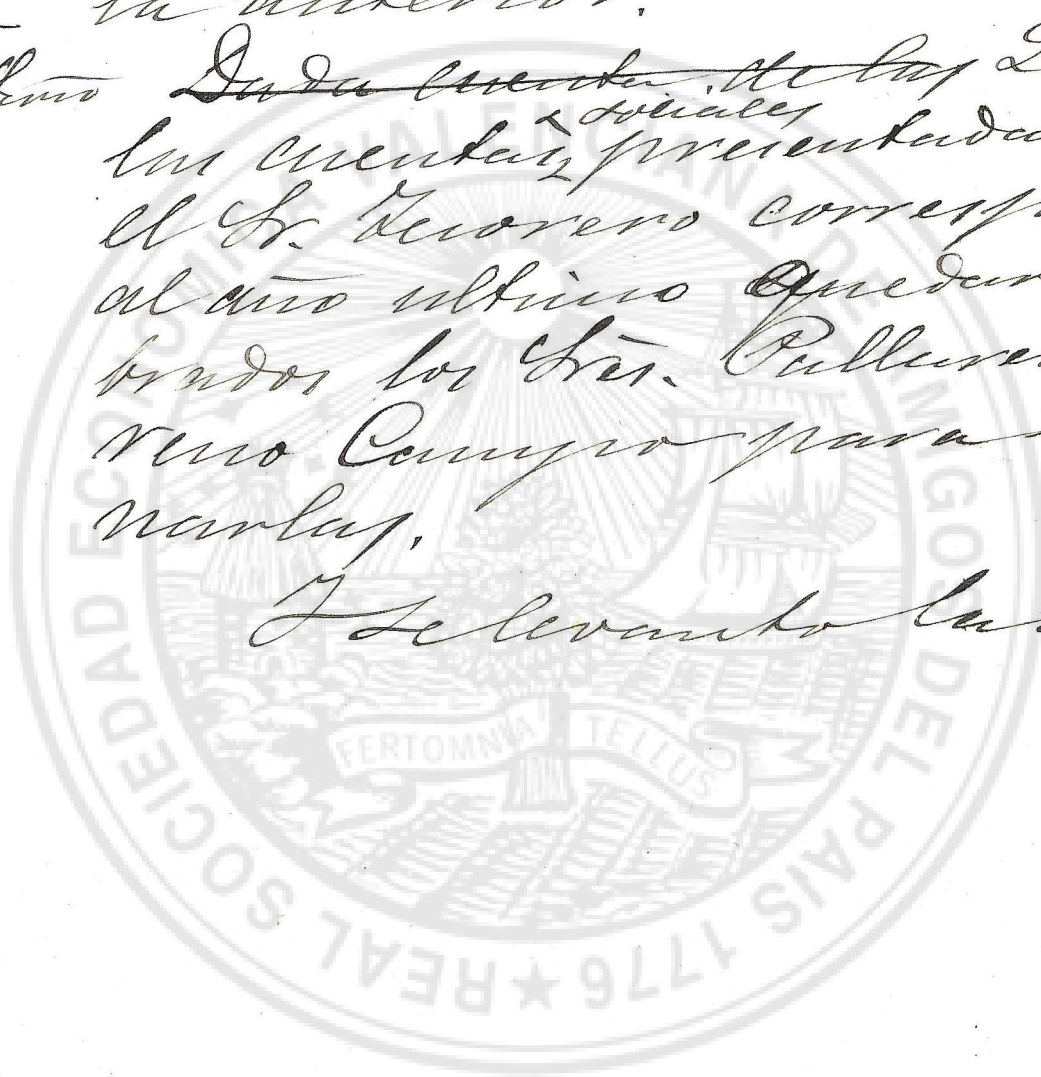 la anterior.
Dada cuenta de las
las cuentas sociales presentada
el Sr. Tesorero corresp
al año ultimo quedar
brados los Sres. Pallare
reno Campo para
narlas.
Y se levanto la
REAL SOCIEDAD ECONOMICA VALENCIANA DE AMIGOS DEL PAIS 1776
FERTOMNIA TELLUS